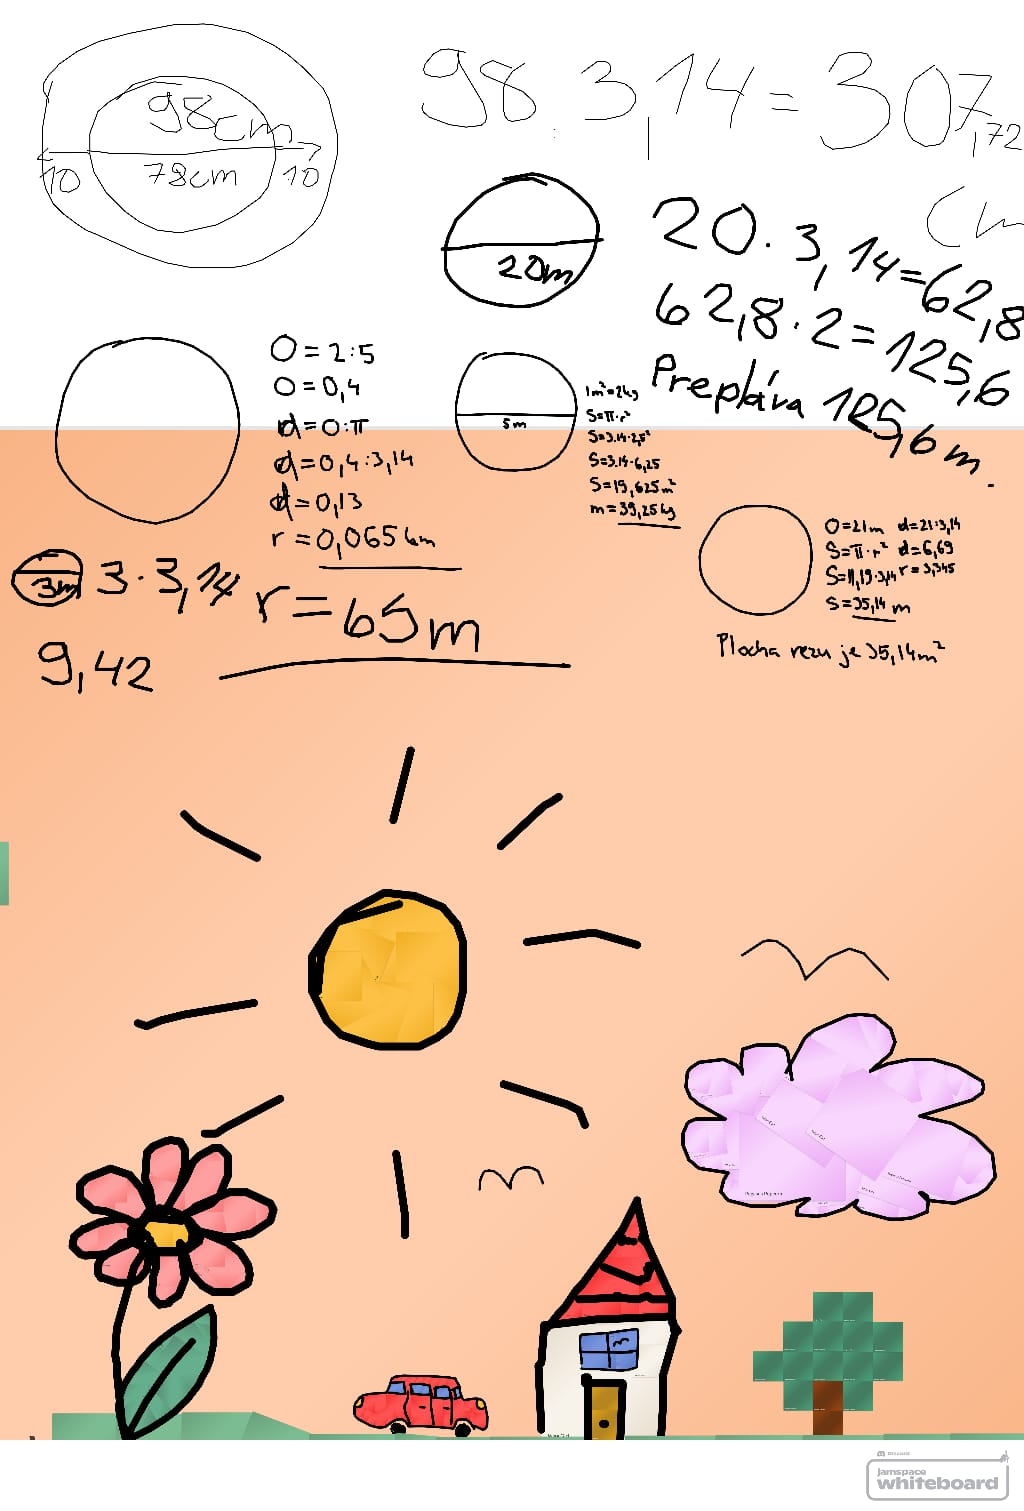 98cm
10
78cm
10
98.3,14=307,72
cm
20m
20.3,14=62,8
62,8.2=125,6
Prepláva 125,6m.
O=2:5
O=0,4
d=O:π
d=0,4:3,14
d=0,13
r=0,065km
r=65m
5m
1m²=2kg
S=π·r²
S=3.14·2,5²
S=3.14·6,25
S=19,625m²
m=39,25kg
3m
3·3,14
9,42
O=21m d=21:3,14
S=π·r² d=6,69
S=11,19·3,14 r=3,345
S=35,14m
Plocha rezu je 35,14m²
jamspace
whiteboard